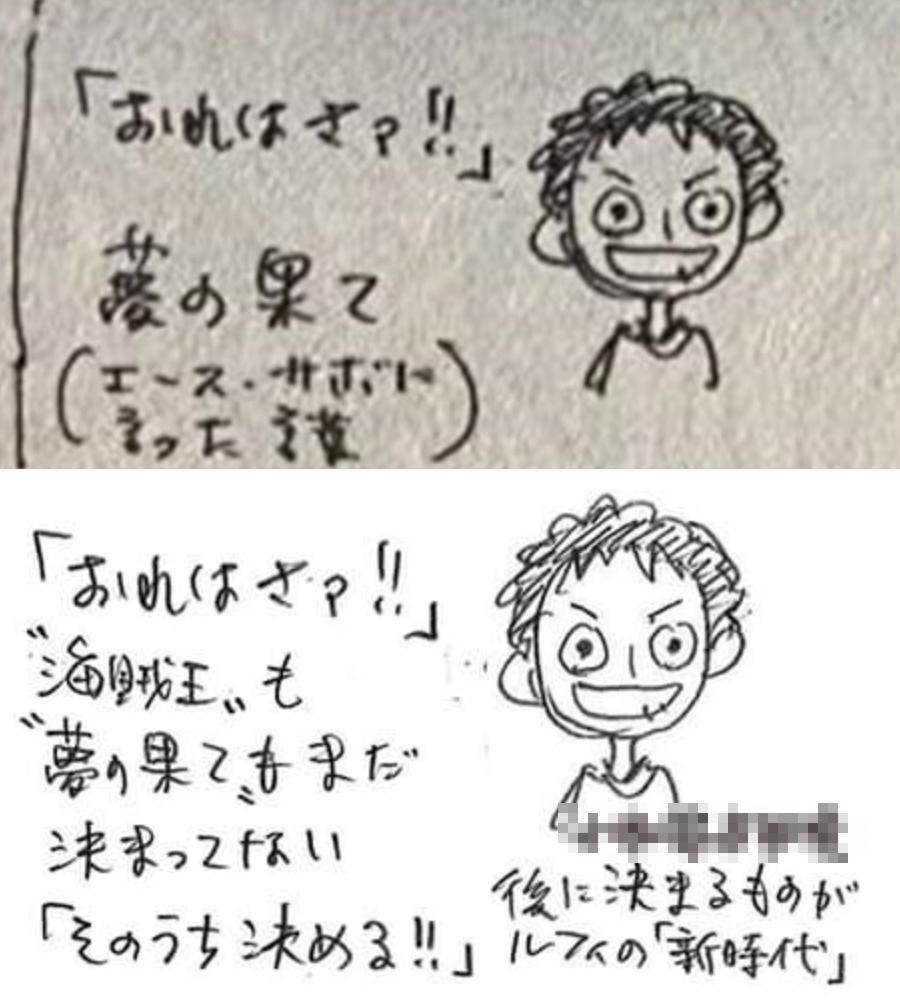 「おれはさァ!!」
夢の果て
(エース・サボに
言った言葉)
「おれはさァ!!」
"海賊王"も
"夢の果て"もまだ
決まってない
「そのうち決める!!」
後に決まるものが
ルフィの「新時代」